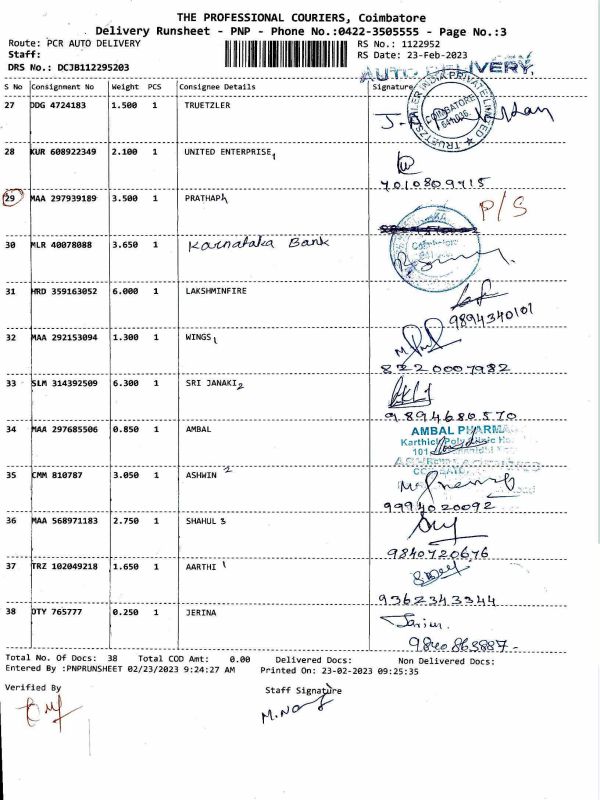 THE PROFESSIONAL COURIERS, Coimbatore
Delivery Runsheet - PNP - Phone No.:0422-3505555 - Page No.:3
Route: PCR AUTO DELIVERY
RS No.: 1122952
Staff:
RS Date: 23-Feb-2023
DRS No.: DCJB112295203
AUTO DELIVERY.
S No Consignment No Weight PCS Consignee Details Signature
27 DDG 4724183 1.500 1 TRUETZLER
COIMBATORE
28 KUR 608922349 2.100 1 UNITED ENTERPRISE 1
7010809715
29 MAA 297939189 3.500 1 PRATHAP
P/S
30 MLR 40078088 3.650 1 Karnataka Bank
31 HRD 359163052 6.000 1 LAKSHMINFIRE
9894340101
32 MAA 292153094 1.300 1 WINGS 1
8220007982
33 SLM 314392509 6.300 1 SRI JANAKI 2
9894680570
34 MAA 297685506 0.850 1 AMBAL
AMBAL PHARMA
101
35 CMM 810787 3.050 1 ASHWIN 2
9994020092
36 MAA 568971183 2.750 1 SHAHUL 3
9840720676
37 TRZ 102049218 1.650 1 AARTHI 1
9362343344
38 DTY 765777 0.250 1 JERINA
9840863887-
Total No. Of Docs: 38 Total COD Amt: 0.00 Delivered Docs: Non Delivered Docs:
Entered By :PNPRUNSHEET 02/23/2023 9:24:27 AM Printed On: 23-02-2023 09:25:35
Verified By
Staff Signature